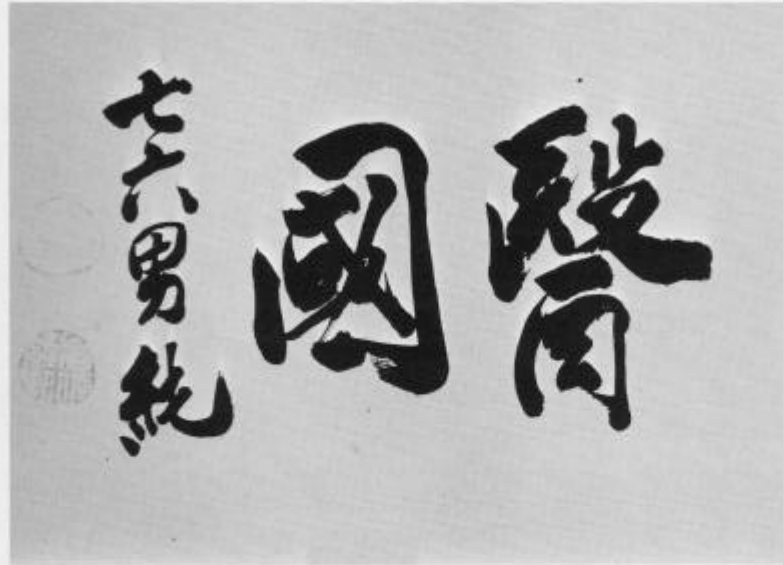 醫國
七六男純